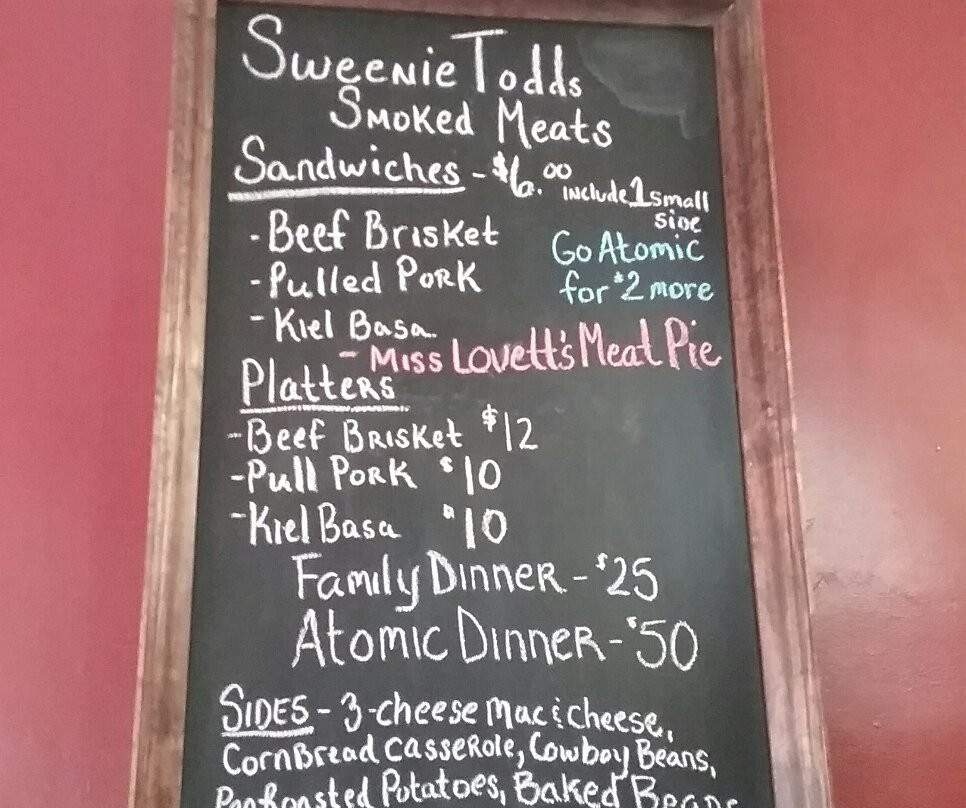 Sweenie Todds
Smoked Meats
Sandwiches - $6.00 include 1 small side
- Beef Brisket
Go Atomic
- Pulled Pork
for $2 more
- Kiel Basa
- Miss Lovett's Meat Pie
Platters
- Beef Brisket $12
- Pull Pork $10
- Kiel Basa $10
Family Dinner - $25
Atomic Dinner - $50
Sides - 3-cheese Mac & cheese,
CornBread Casserole, Cowboy Beans,
PanRoasted Potatoes, Baked Beans